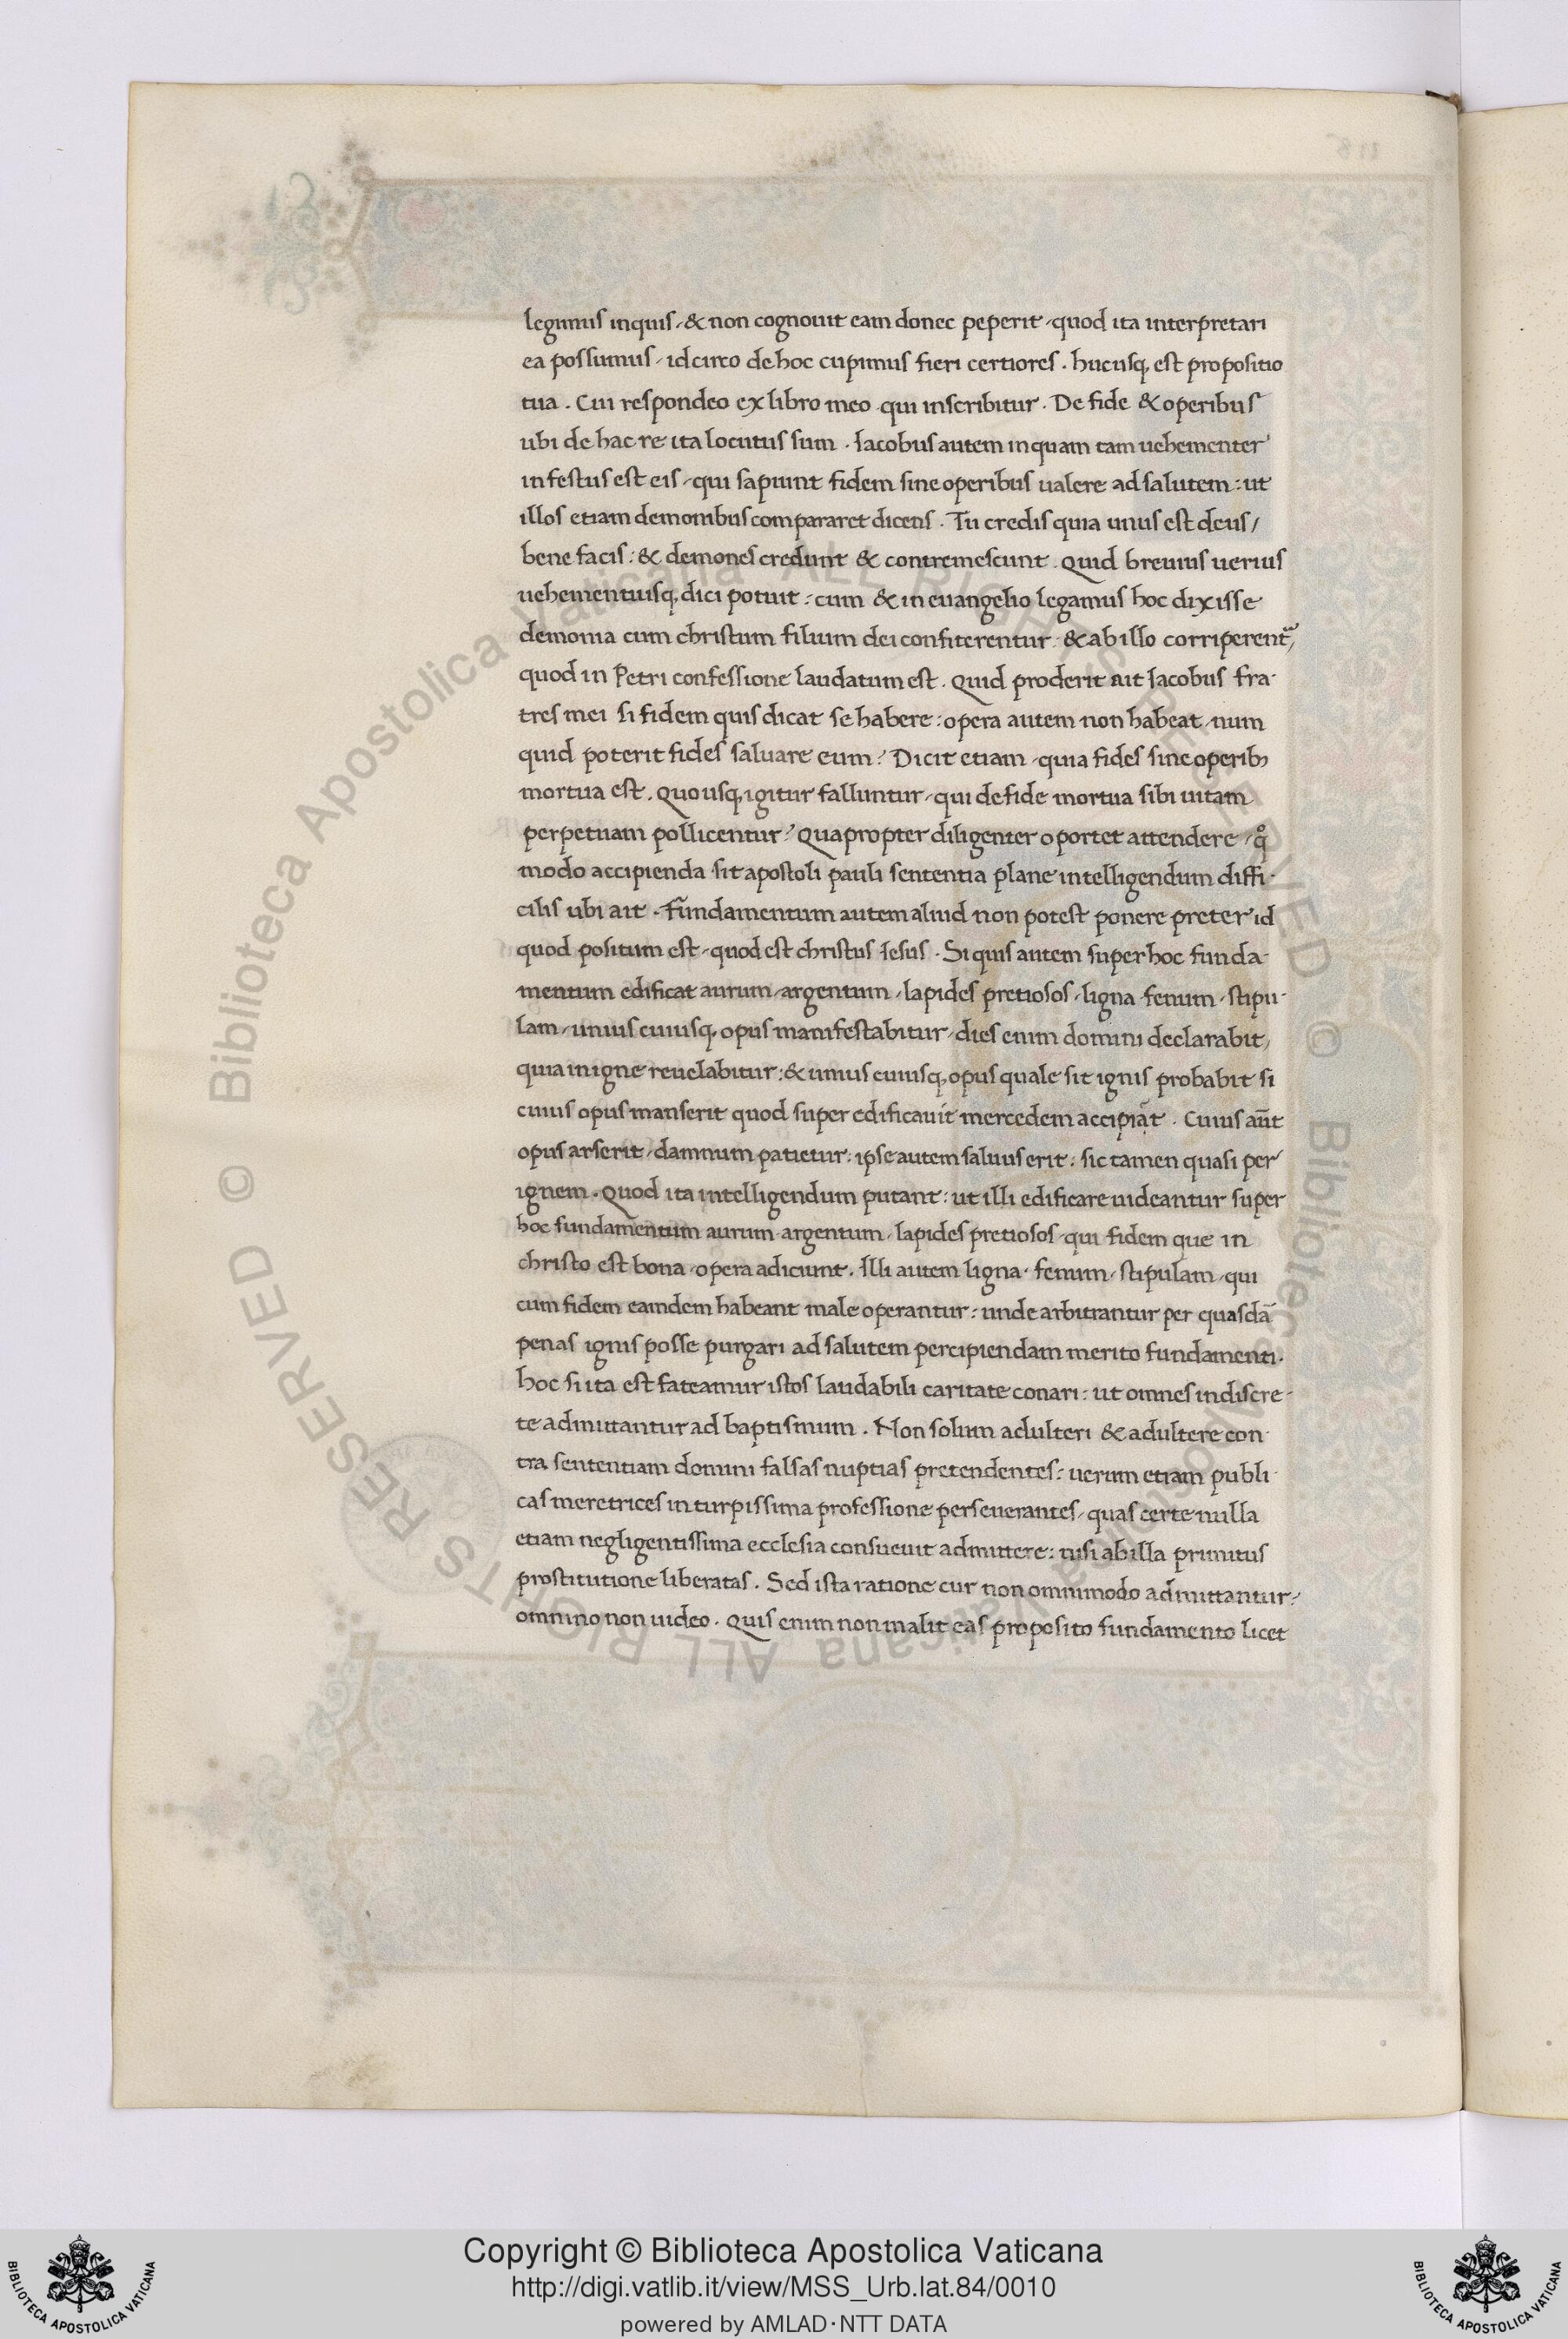 legimus inquis, & non cognouit eam donec peperit, quod ita interpretari
ea possumus, idcirco de hoc cupimus fieri certiores. hucusq; est propositio
tua. Cui respondeo ex libro meo qui inscribitur. De fide & operibus
ubi de hac re ita locutus sum. Iacobus autem inquam tam uehementer
infestus est eis, qui sapiunt fidem sine operibus ualere ad salutem: ut
illos etiam demonibus compararet dicens. Tu credis quia unus est deus/
bene facis: & demones credunt & contremescunt. Quid breuius uerius
uehementiusq; dici potuit: cum & in euangelio legamus hoc dixisse
demonia cum christum filium dei confiterentur & ab illo corriperent᷑,
quod in Petri confessione laudatum est. Quid proderit ait Iacobus fra-
tres mei si fidem quis dicat se habere: opera autem non habeat, num
quid poterit fides saluare eum? Dicit etiam, quia fides sine operib;
mortua est. Quousq; igitur falluntur, qui de fide mortua sibi uitam
perpetuam pollicentur? Quapropter diligenter oportet attendere, qͦ
modo accipienda sit apostoli pauli sententia plane intelligendum diffi-
cilis ubi ait. Fundamentum autem aliud non potest ponere preter id
quod positum est, quod est christus Iesus. Si quis autem super hoc funda-
mentum edificat aurum, argentum, lapides pretiosos, ligna fenum, stipu-
lam, unius cuiusq; opus manifestabitur, dies enim domini declarabit,
quia in igne reuelabitur: & unius cuiusq; opus quale sit ignis probabit si
cuius opus manserit quod super edificauit mercedem accipiat. Cuius aūt
opus arserit, damnum patietur: ipse autem saluus erit: sic tamen quasi per
ignem. Quod ita intelligendum putant: ut illi edificare uideantur super
hoc fundamentum aurum argentum, lapides pretiosos, qui fidem que in
christo est bona, opera adiciunt. Illi autem ligna, fenum, stipulam, qui
cum fidem eamdem habeant male operantur: unde arbitrantur per quasdā
penas ignis posse purgari ad salutem percipiendam merito fundamenti.
hoc si ita est fateamur istos laudabili caritate conari: ut omnes indiscre-
te admittantur ad baptismum. Non solum adulteri & adultere con-
tra sententiam domini falsas nuptias pretendentes: uerum etiam publi-
cas meretrices in turpissima professione perseuerantes, quas certe nulla
etiam negligentissima ecclesia consueuit admittere: nisi ab illa primitus
prostitutione liberatas. Sed ista ratione cur non omnimodo admittantur,
omnino non uideo. Quis enim non malit eas proposito fundamento licet
© Biblioteca Apostolica Vaticana ALL RIGHTS RESERVED © Biblioteca Apostolica Vaticana ALL RIGHTS RESERVED
Copyright © Biblioteca Apostolica Vaticana
http://digi.vatlib.it/view/MSS_Urb.lat.84/0010
powered by AMLAD·NTT DATA
BIBLIOTECA APOSTOLICA VATICANA
BIBLIOTECA APOSTOLICA VATICANA